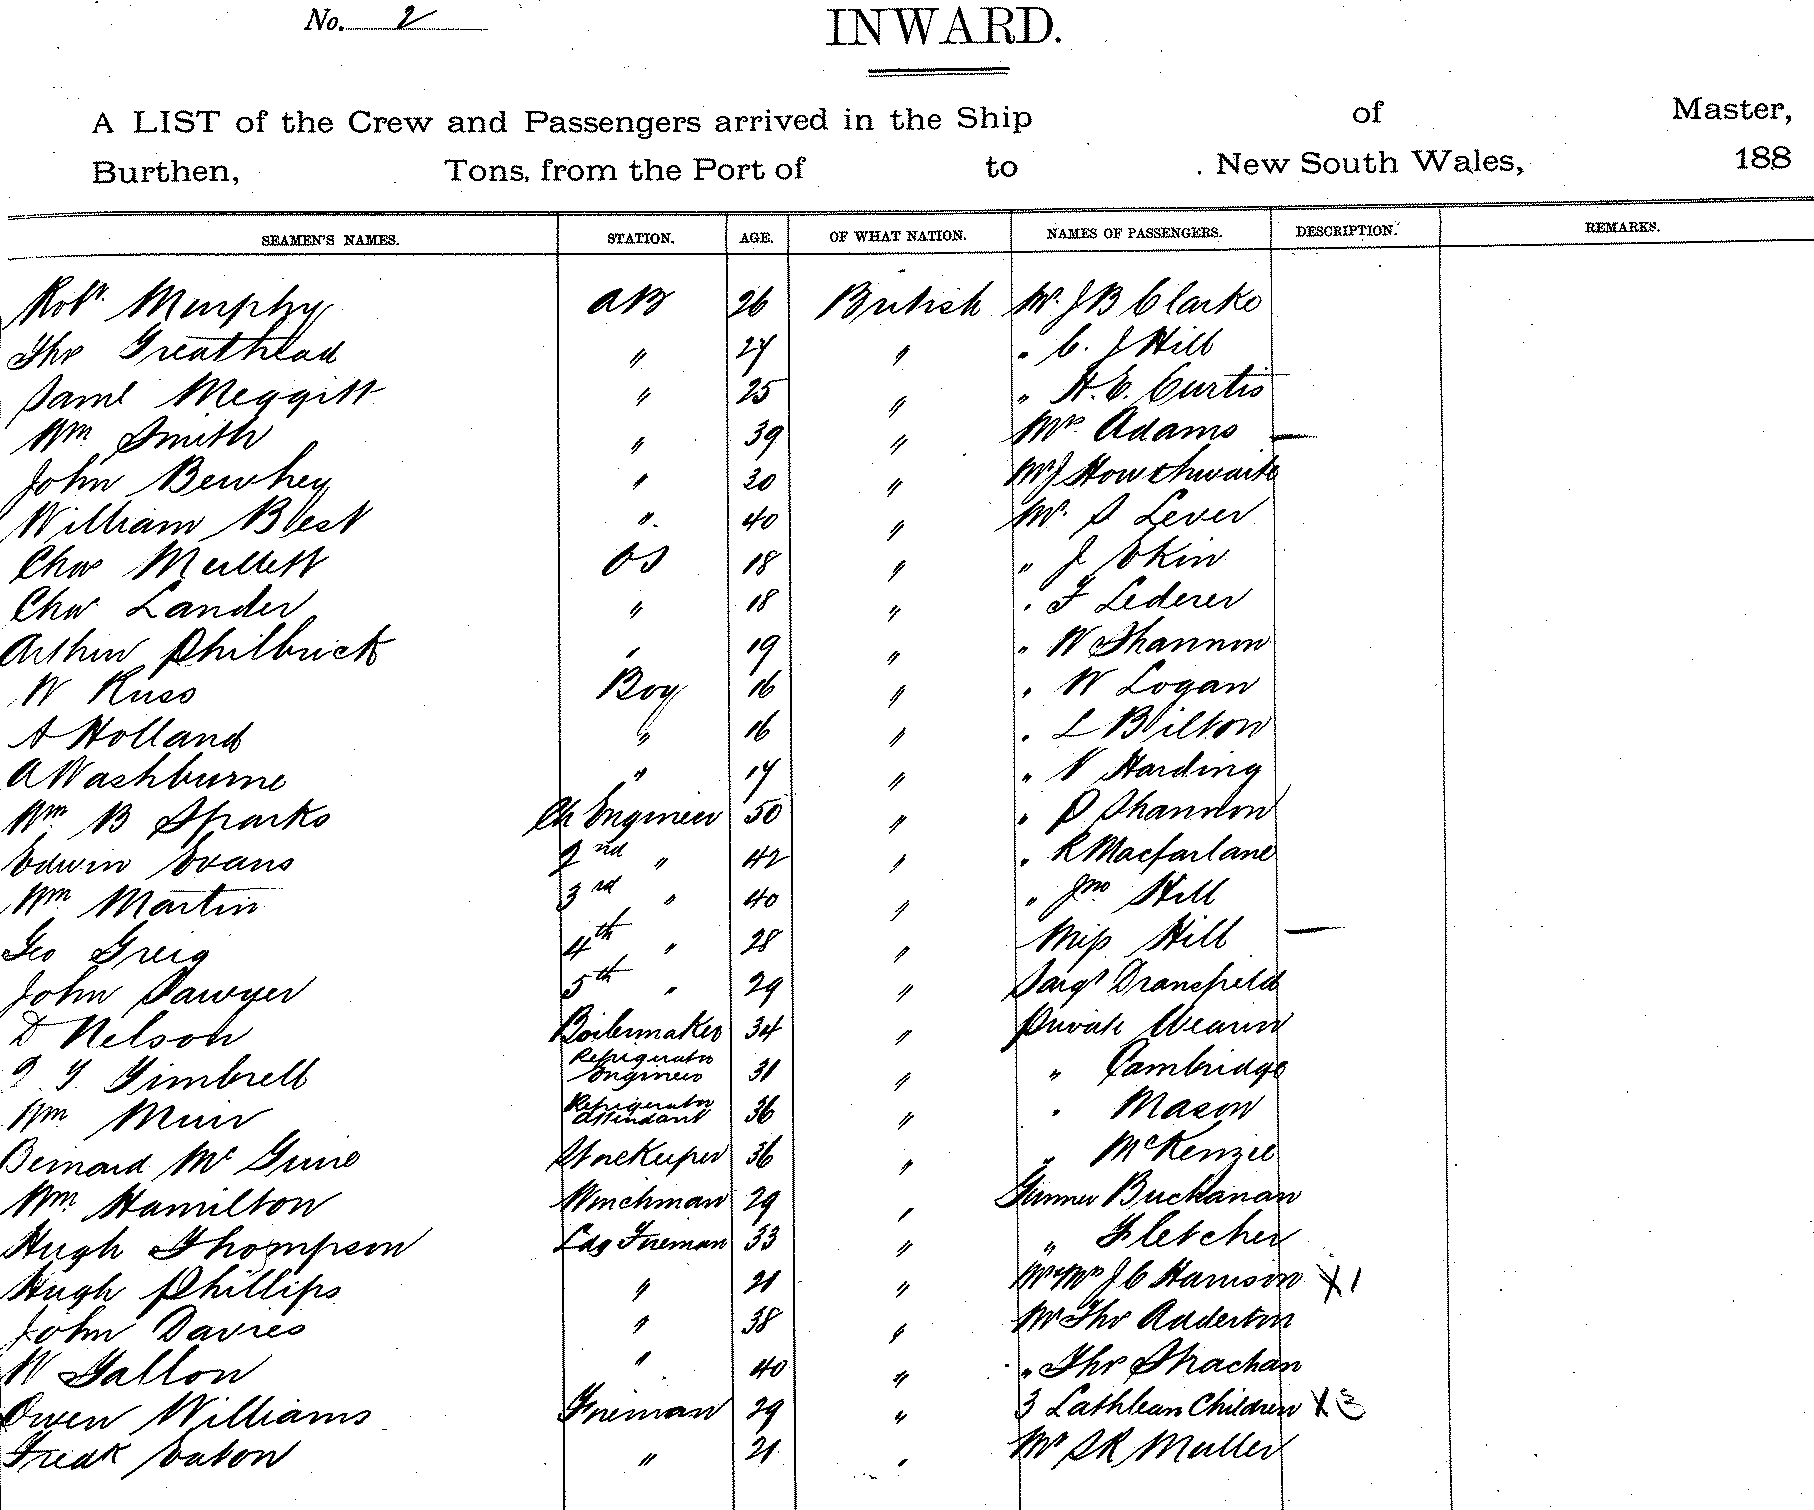 No. 2
INWARD.
A LIST of the Crew and Passengers arrived in the Ship of Master,
Burthen, Tons, from the Port of to , New South Wales, 188
SEAMEN'S NAMES. STATION. AGE. OF WHAT NATION. NAMES OF PASSENGERS. DESCRIPTION. REMARKS.
Robt. Murphy AB 26 British Mr. J B Clarke
Thos Greathead " 27 " " C. J Hill
Saml Meggitt " 25 " " H. E. Curtis
Wm Smith " 39 " Mrs Adams —
John Bewhey " 30 " Mr J Howthwaite
William Blest " 40 " Mr. S Lever
Chas Mullett OS 18 " " J Ekin
Chas Lander " 18 " " F Lederer
Arthur Philbrick " 19 " " W Shannon
W Russ Boy 16 " " W Logan
A Holland " 16 " " L Bilton
A Washburne " 17 " " V Harding
Wm B Sparks Ch Engineer 50 " " P Shannon
Edwin Evans 2nd " 42 " " R Macfarlane
Wm Martin 3rd " 40 " " Jno Hill
Geo Greig 4th " 28 " Miss Hill —
John Sawyer 5th " 29 " Sargt Dransfield
D Nelson Boilermaker 34 " Private Wearin
Gimbrell Refrigerator Engineer 31 " " Cambridge
Wm Muir Refrigerator Attendant 36 " " Mason
Bernard Mc Guire Storekeeper 36 " " McKenzie
Wm Hamilton Winchman 29 " Gunner Buckanan
Hugh Thompson Ldg Fireman 33 " " Fletcher
Hugh Phillips " 21 " Mr & Mrs J C Harrison X1
John Davies " 38 " Mr Thos Adderton
W Gallon " 40 " " Thos Strachan
Owen Williams Fireman 29 " 3 Lathlean Children X3
Fredk Eaton " 21 " Mr S R Muller